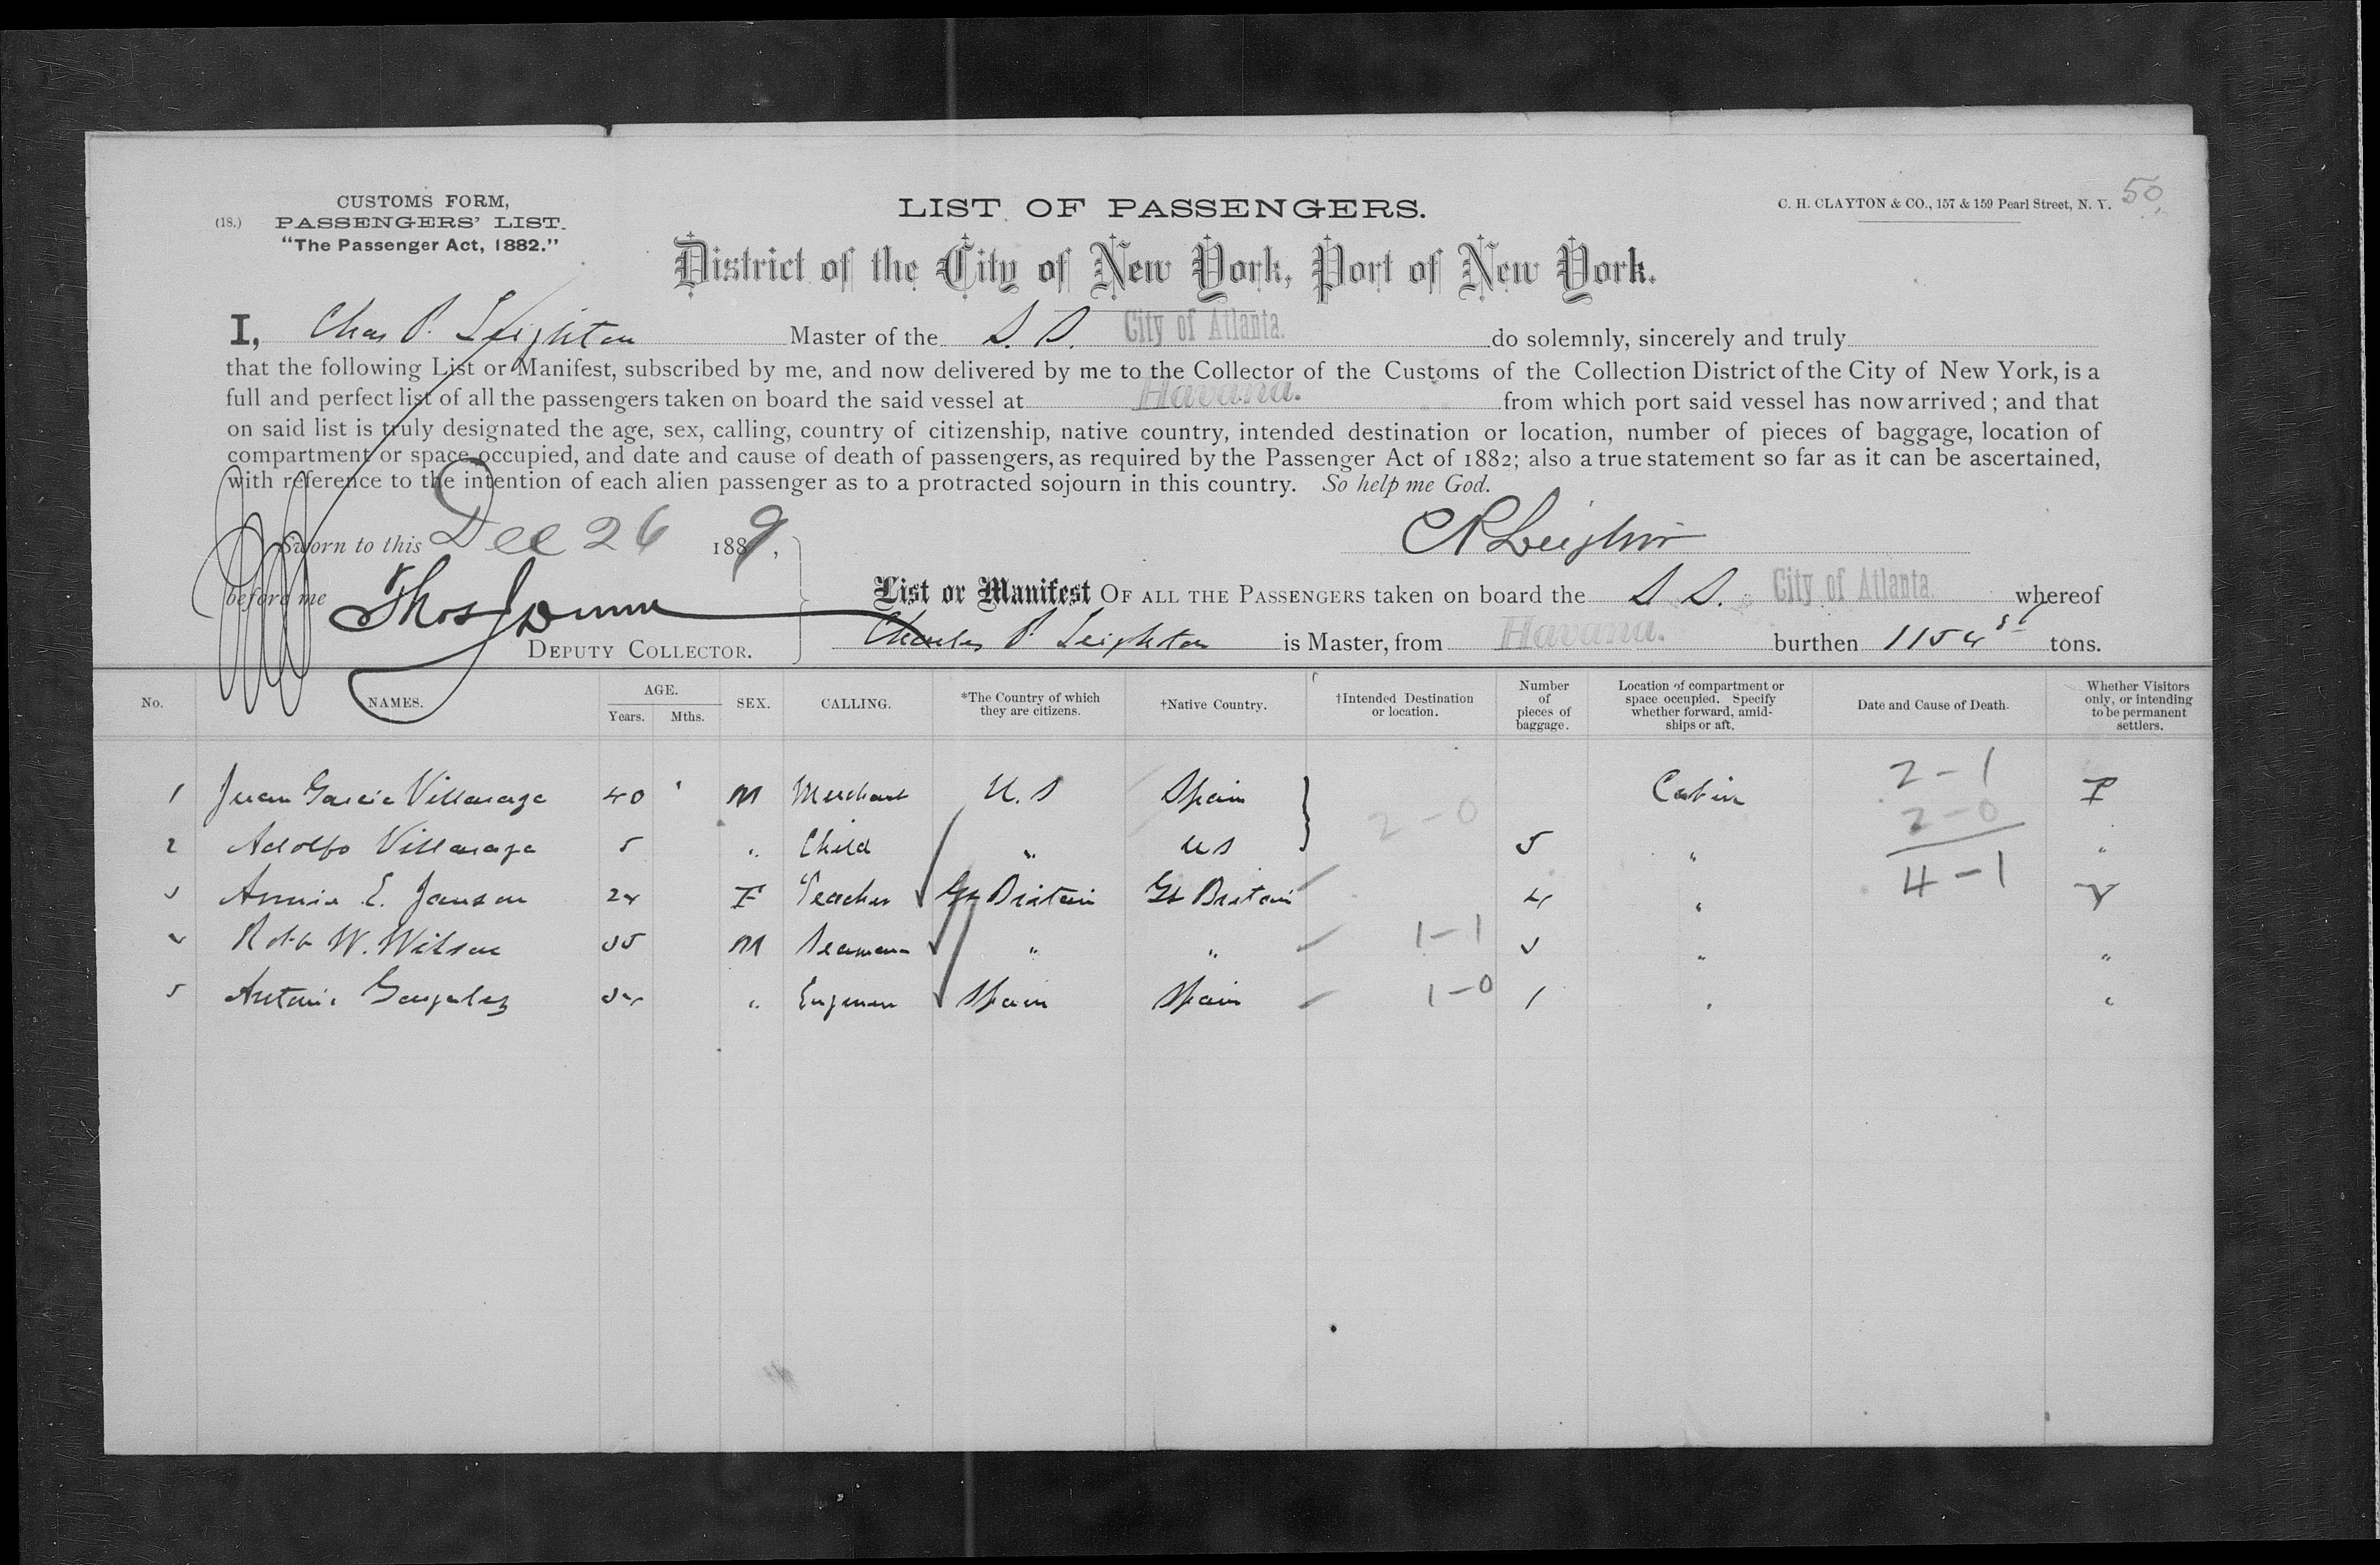 CUSTOMS FORM,
(18.) PASSENGERS' LIST.
"The Passenger Act, 1882."
LIST OF PASSENGERS.
C. H. CLAYTON & CO., 157 & 159 Pearl Street, N. Y. 50
District of the City of New York, Port of New York.
I, Chas P. Leighton Master of the S. S. City of Atlanta. do solemnly, sincerely and truly
that the following List or Manifest, subscribed by me, and now delivered by me to the Collector of the Customs of the Collection District of the City of New York, is a
full and perfect list of all the passengers taken on board the said vessel at Havana. from which port said vessel has now arrived; and that
on said list is truly designated the age, sex, calling, country of citizenship, native country, intended destination or location, number of pieces of baggage, location of
compartment or space occupied, and date and cause of death of passengers, as required by the Passenger Act of 1882; also a true statement so far as it can be ascertained,
with reference to the intention of each alien passenger as to a protracted sojourn in this country. So help me God.
Sworn to this Dec 26 1889,
C P Leighton
before me Thos
DEPUTY COLLECTOR.
List or Manifest OF ALL THE PASSENGERS taken on board the S S. City of Atlanta. whereof
Charles P. Leighton is Master, from Havana. burthen 1154 tons.
No. NAMES. AGE. Years. Mths. SEX. CALLING. *The Country of which they are citizens. †Native Country. †Intended Destination or location. Number of pieces of baggage. Location of compartment or space occupied. Specify whether forward, amidships or aft. Date and Cause of Death. Whether Visitors only, or intending to be permanent settlers.
1 Juan Garcia Villaraza 40 M Merchant U. S Spain Cabin 2-1 P
2 Adolfo Villaraza 5 " Child " U S 2-0 5 " 2-0 "
3 Annie E. Janson 24 F Teacher Gt Britain Gt Britain 4 " 4-1 V
4 Robt W. Wilson 35 M Seaman " " 1-1 3 " "
5 Antonio Gonzalez 34 " Engineer Spain Spain 1-0 1 " "